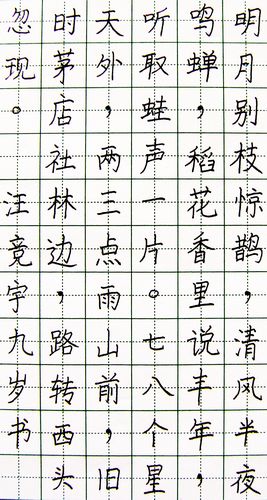 明月别枝惊鹊，清风半夜
鸣蝉，稻花香里说丰年，
听取蛙声一片。七八个星
天外，两三点雨山前，旧
时茅店社林边，路转西头
忽现。 汪竟宇九岁书